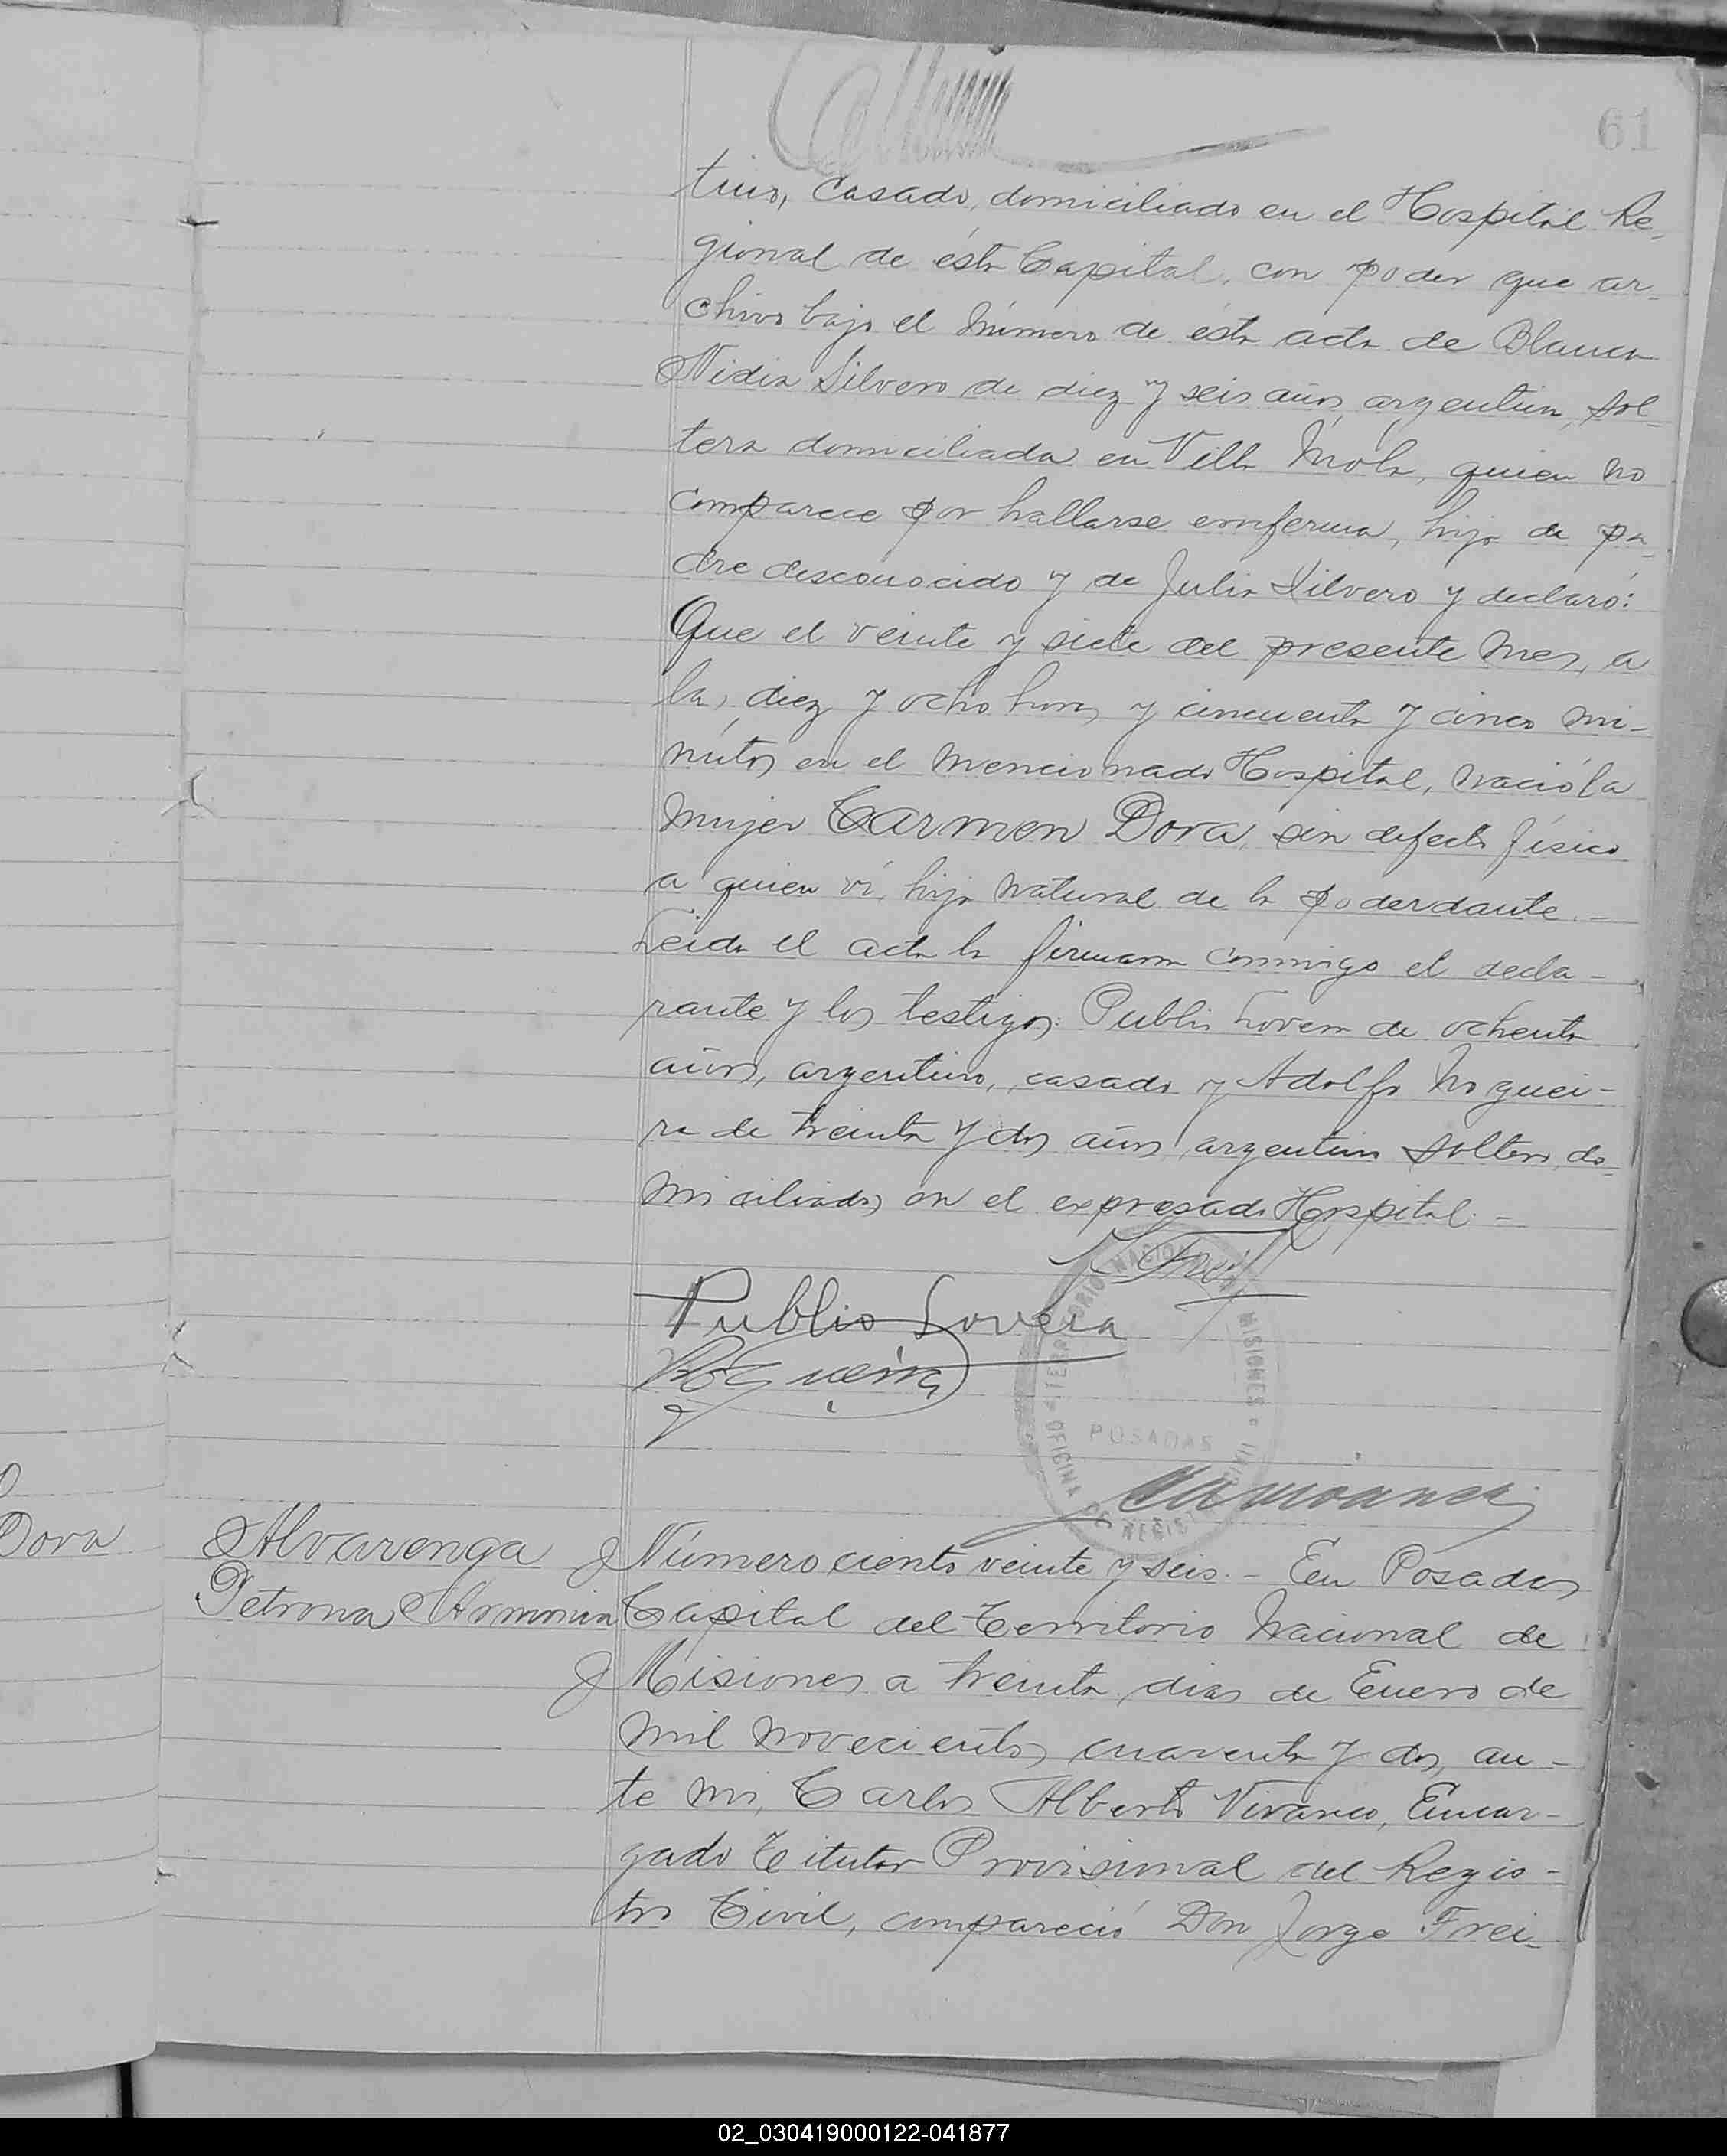 61
tino, casado, domiciliado en el Hospital Re-
gional de ésta Capital, con poder que ar-
chivo bajo el número de ésta acta de Blanca
Nidia Silvero de diez y seis años, argentina, sol-
tera domiciliada en Villa Mola, quien no
comparece por hallarse enferma, hija de pa-
dre desconocido y de Julia Silvero y declaró:
Que el veinte y siete del presente mes, a
las diez y ocho horas y cincuenta y cinco mi-
nutos en el mencionado Hospital, nació la
mujer Carmen Dora, sin defecto físico
a quien ví, hija natural de la poderdante.-
Leida el acta la firmaron conmigo el decla-
rante y los testigos: Publio Lovera de ochenta
años, argentino, casado y Adolfo Noguei-
ra de treinta y dos años argentino soltero, do-
miciliados en el expresado Hospital.-
Publio Lovera
Nogueira
TERRITORIO NACIONAL DE MISIONES
POSADAS
OFICINA DE REGISTRO CIVIL
Dora
Alvarenga
Petrona Armonia
Número ciento veinte y seis.- En Posadas
Capital del Territorio Nacional de
Misiones a treinta dias de Enero de
mil novecientos cuarenta y dos, an-
te mi, Carlos Alberto Vivanco, Encar-
gado Titular Provisional del Regis-
tro Civil, compareció Don Jorge Frei-
02_030419000122-041877